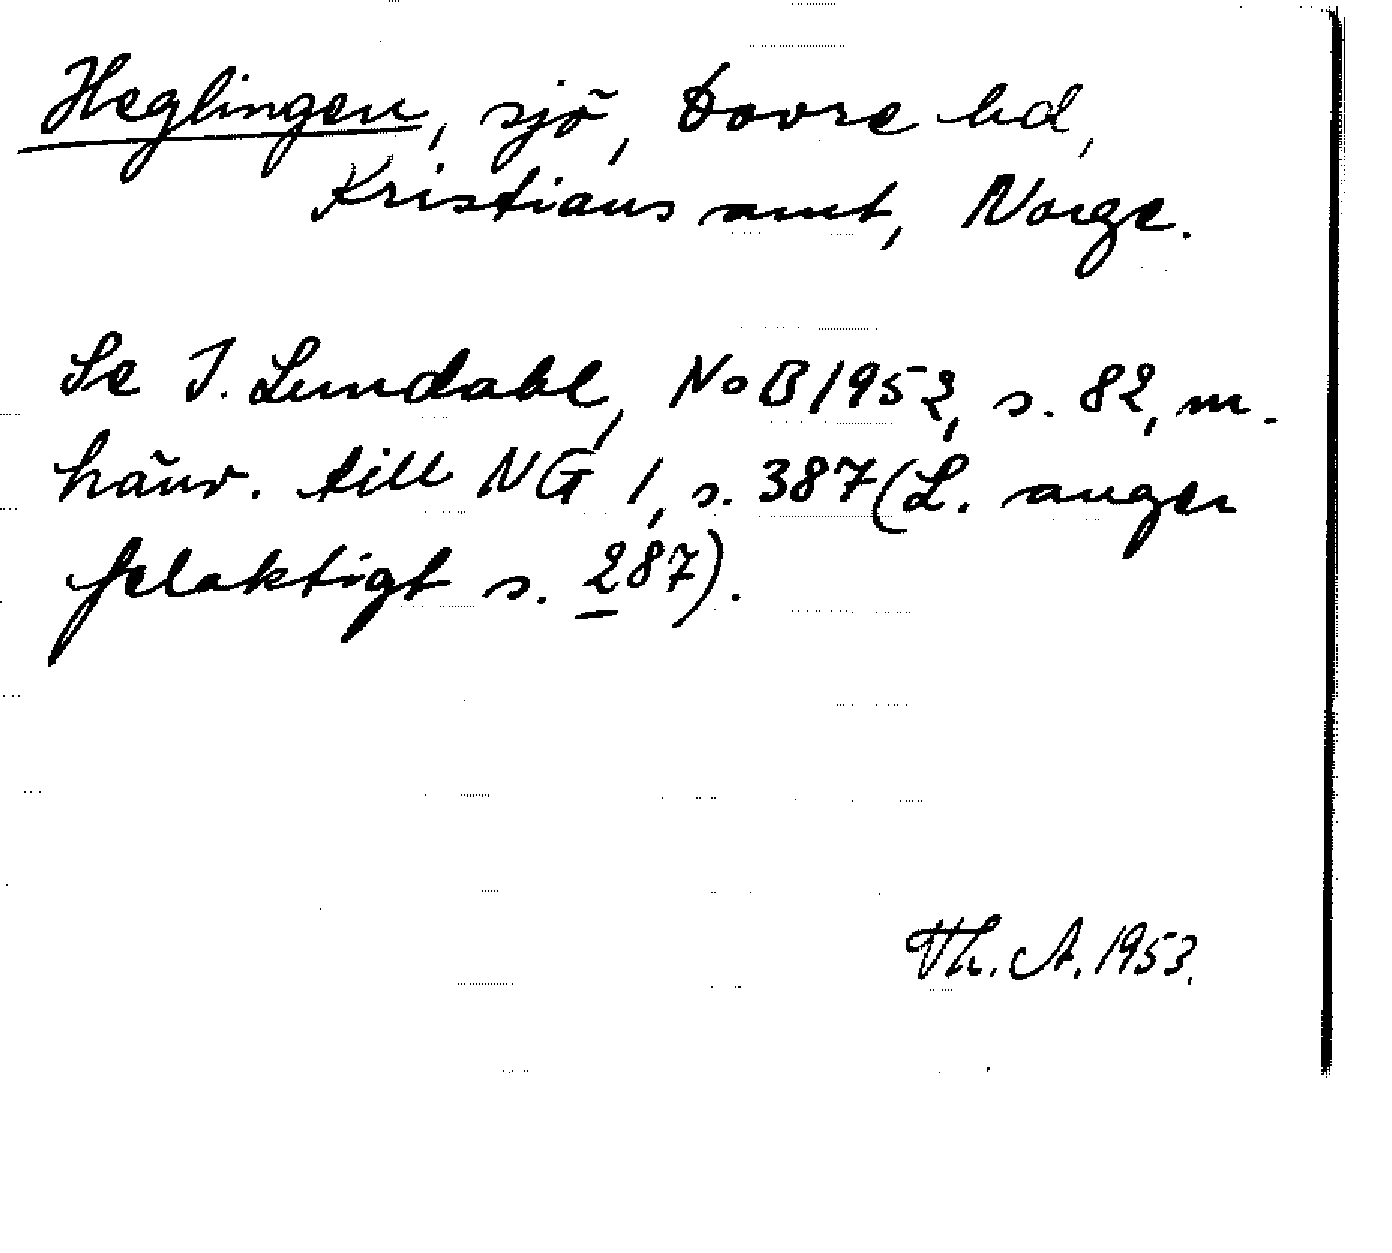 Heglingen, sjö, Dovre hd,
Kristians amt, Norge.
Se I. Lundahl, NoB 1952, s. 82, m.
hänv. till NG 1, s. 387 (L. anger
felaktigt s. 287).
Th. A. 1953.